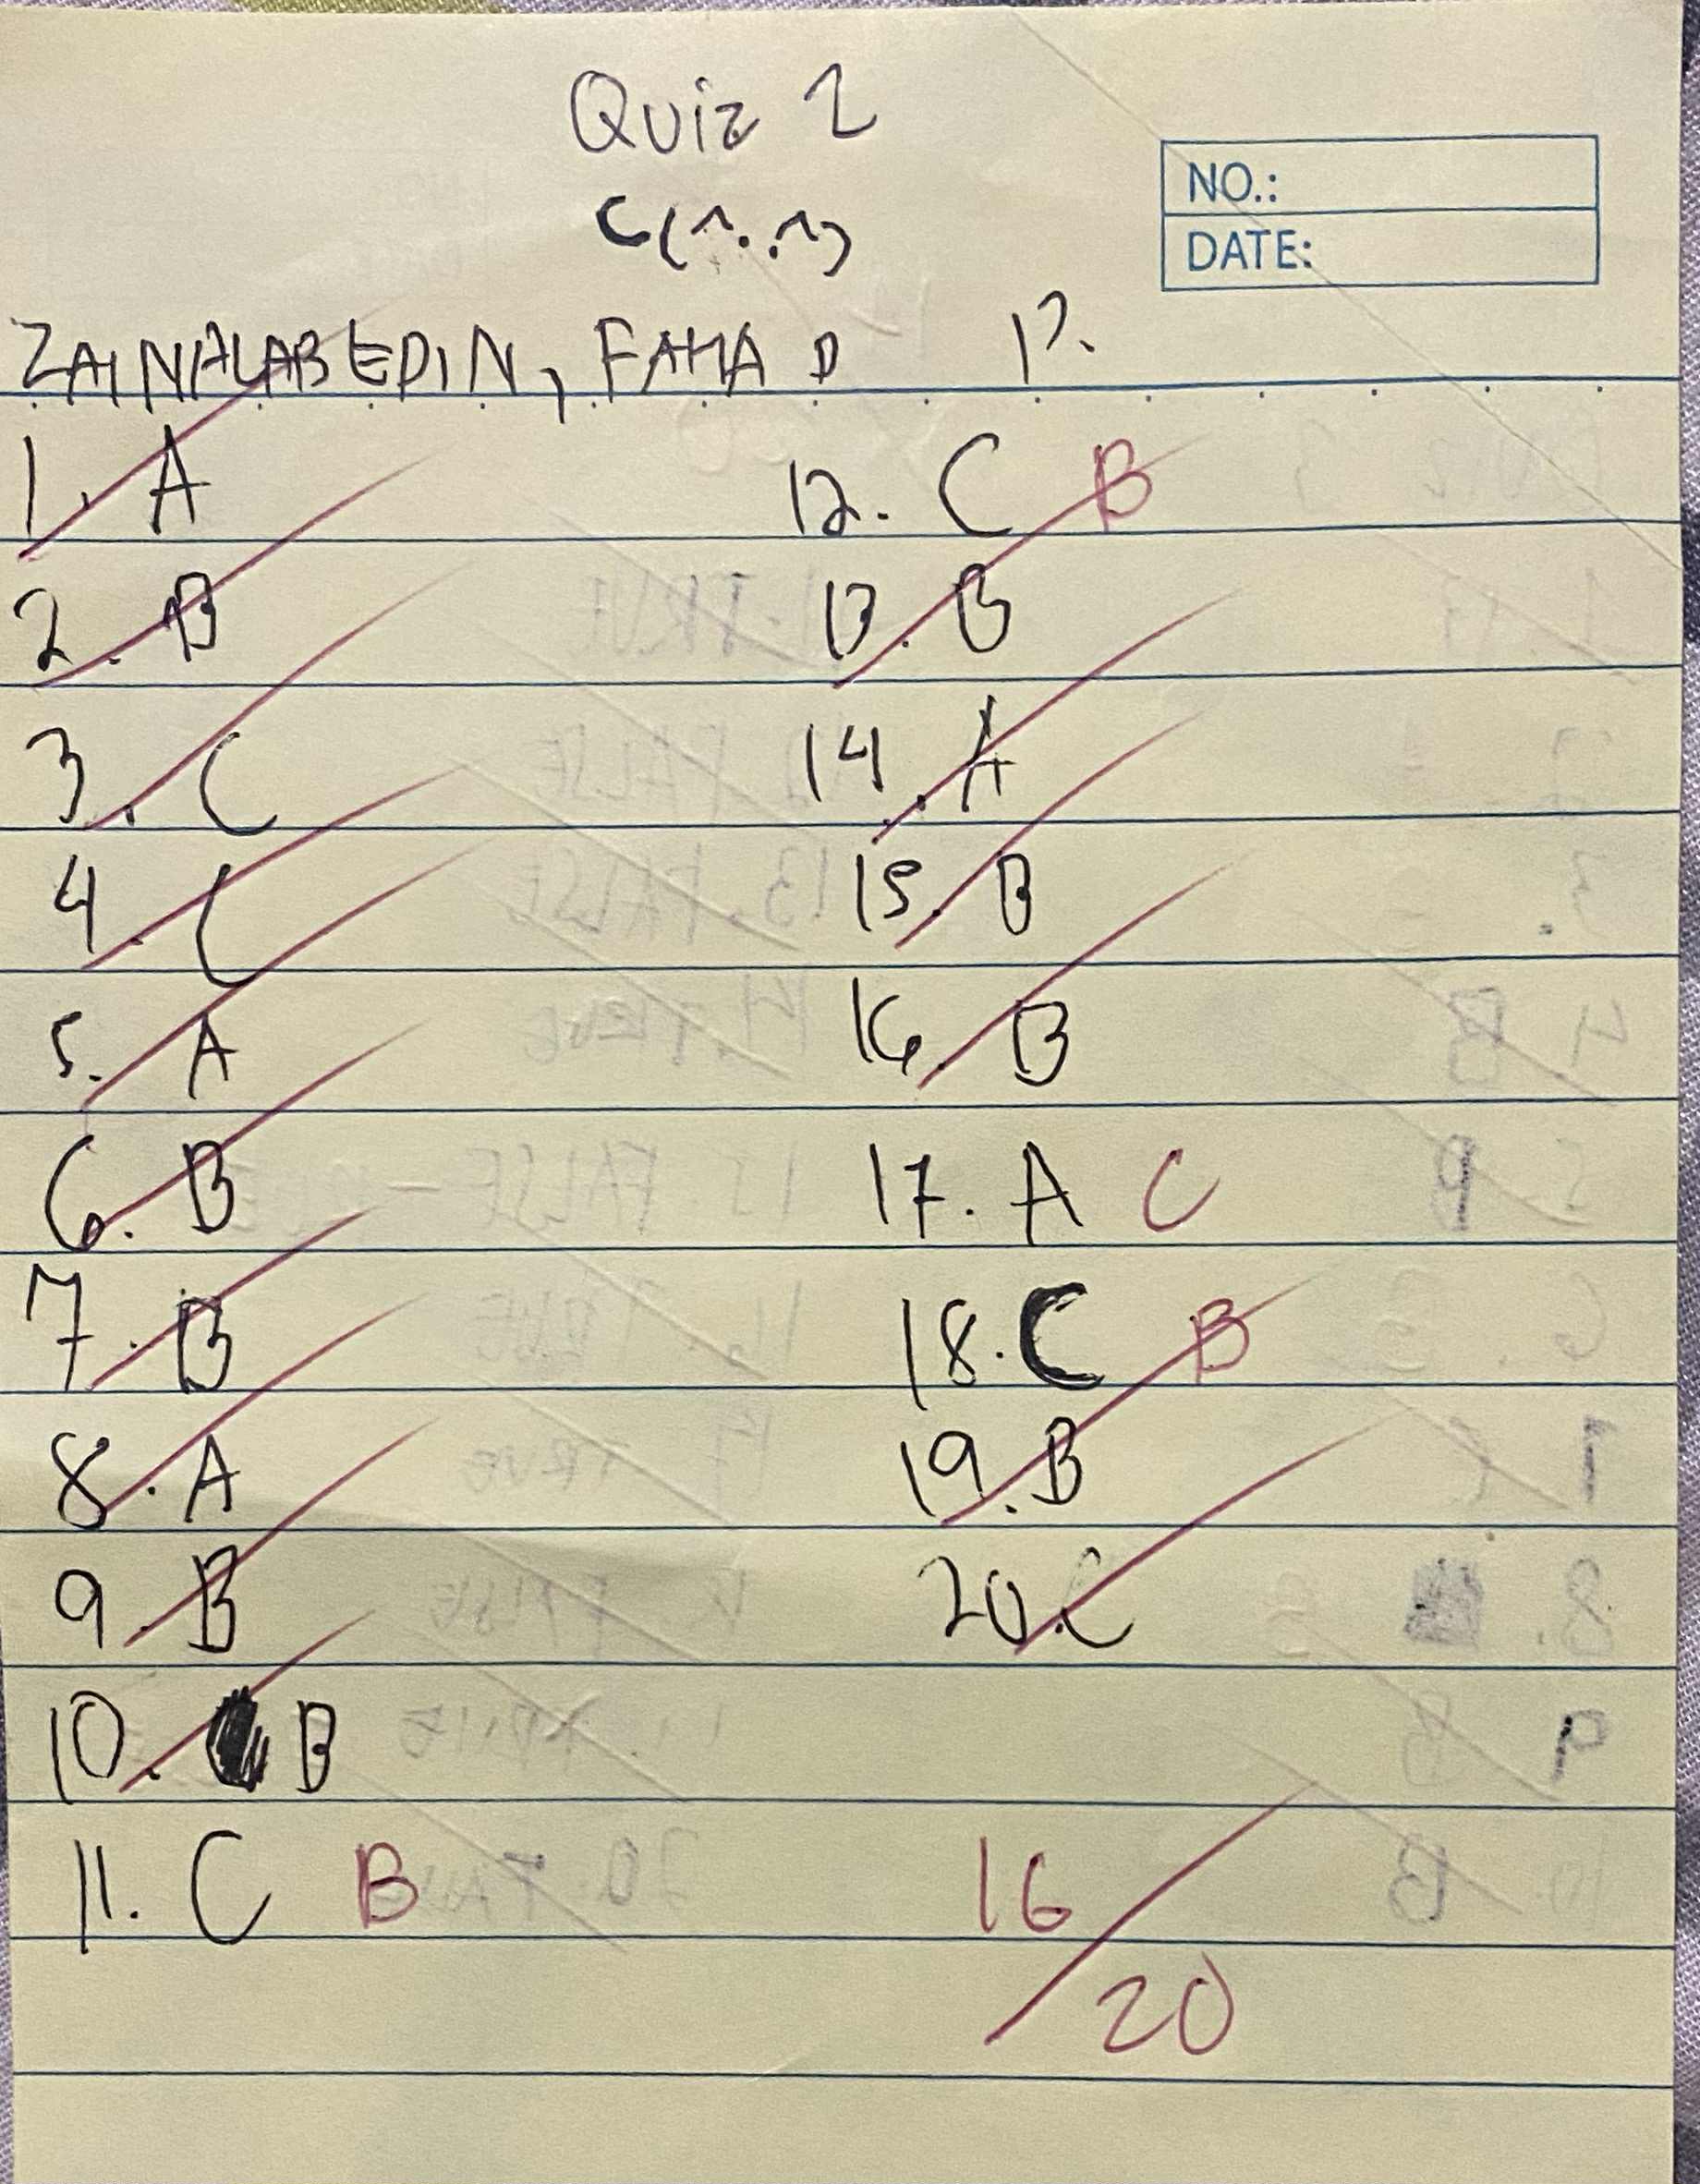 Quiz 2
C(^..^)
NO.:
DATE:
ZAINALABEDIN, FAHAD P.
1. A
2. B
3. C
4. C
5. A
6. B
7. B
8. A
9. B
10. B
11. C B
12. C B
13. B
14. A
15. B
16. B
17. A C
18. C B
19. B
20. C
16/20